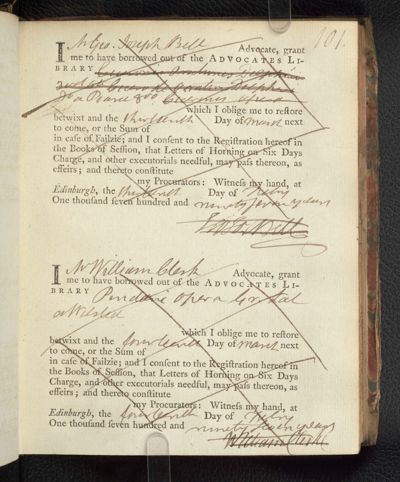 101.
I Mr Geo. Joseph Bell Advocate, grant
me to have borrowed out of the ADVOCATES LI-
BRARY
8vo
which I oblige me to reſtore
betwixt and the thirteenth Day of March next
to come, or the Sum of
in caſe of Failzie; and I conſent to the Regiſtration hereof in
the Books of Seſſion, that Letters of Horning on Six Days
Charge, and other executorials needful, may paſs thereon, as
effeirs; and thereto conſtitute
my Procurators: Witneſs my hand, at
Edinburgh, the thirteenth Day of Febry
One thouſand ſeven hundred and ninety ſeven years
Bell
I Mr William Clerk Advocate, grant
me to have borrowed out of the ADVOCATES LI-
BRARY Pindari opera
which I oblige me to reſtore
betwixt and the fourteenth Day of March next
to come, or the Sum of
in caſe of Failzie; and I conſent to the Regiſtration hereof in
the Books of Seſſion, that Letters of Horning on Six Days
Charge, and other executorials needful, may paſs thereon, as
effeirs; and thereto conſtitute
my Procurators: Witneſs my hand, at
Edinburgh, the fourteenth Day of Febry
One thouſand ſeven hundred and ninety ſeven years
William Clerk